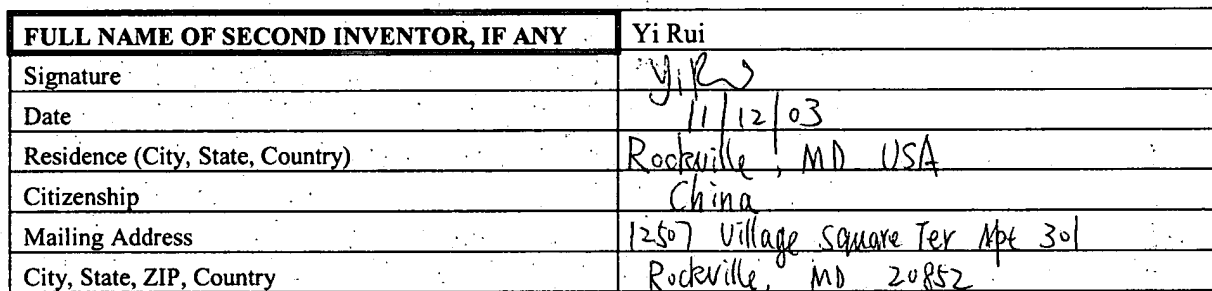 FULL NAME OF SECOND INVENTOR, IF ANY Yi Rui
Signature Yi Rui
Date 11/12/03
Residence (City, State, Country) Rockville, MD USA
Citizenship China
Mailing Address 12507 Village Square Ter Apt 301
City, State, ZIP, Country Rockville, MD 20852